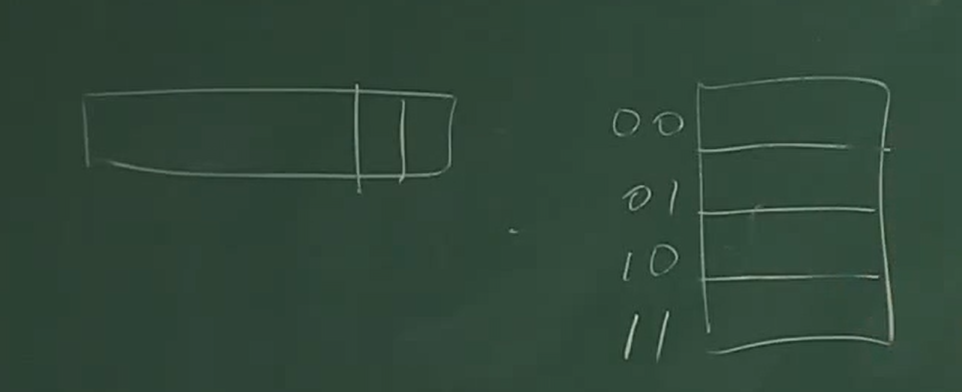 00
01
10
11